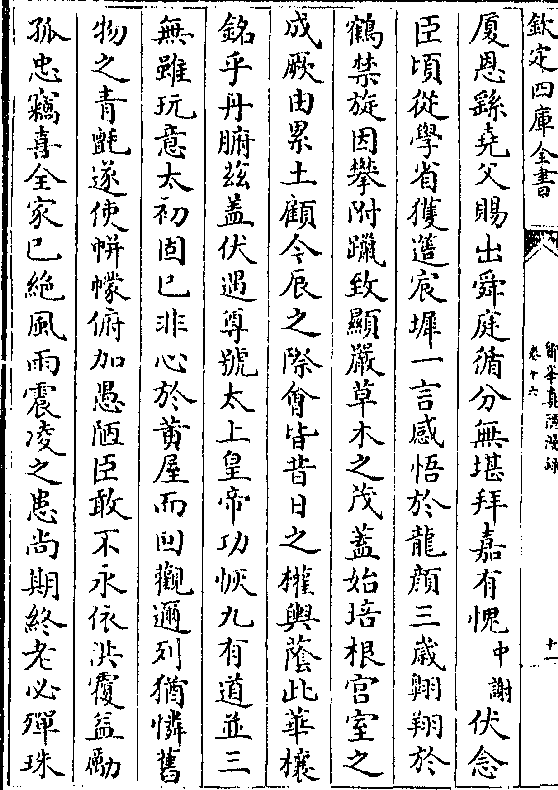 欽定四庫全書
鄮峰真隱漫錄
卷十六
十一
厦恩繇堯父賜出舜庭循分無堪拜嘉有愧中謝伏念
臣頃從學省獲造宸墀一言感悟於龍顔三歲翺翔於
鶴禁旋因攀附躐致顯嚴草木之茂蓋始培根宫室之
成厥由累土顧今辰之際㑹皆昔日之權輿蔭此華榱
銘乎丹腑兹盖伏遇尊號太上皇帝功恢九有道並三
無雖玩意太初固已非心於黄屋而囘觀邇列猶憐舊
物之青氊遂使帡幪俯加愚陋臣敢不永依洪覆益勵
孤忠竊喜全家已絶風雨震凌之患尚期終老必殫珠